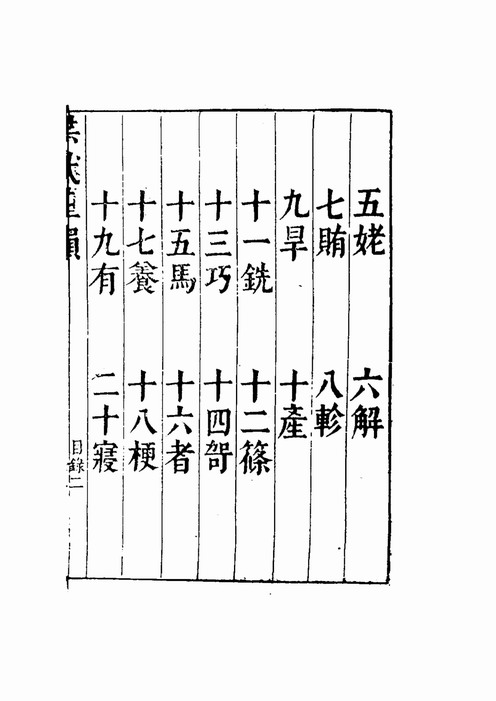 五姥 六解
七賄 八軫
九旱 十產
十一銑 十二篠
十三巧 十四哿
十五馬 十六者
十七養 十八梗
十九有 二十寢
韻 目錄二